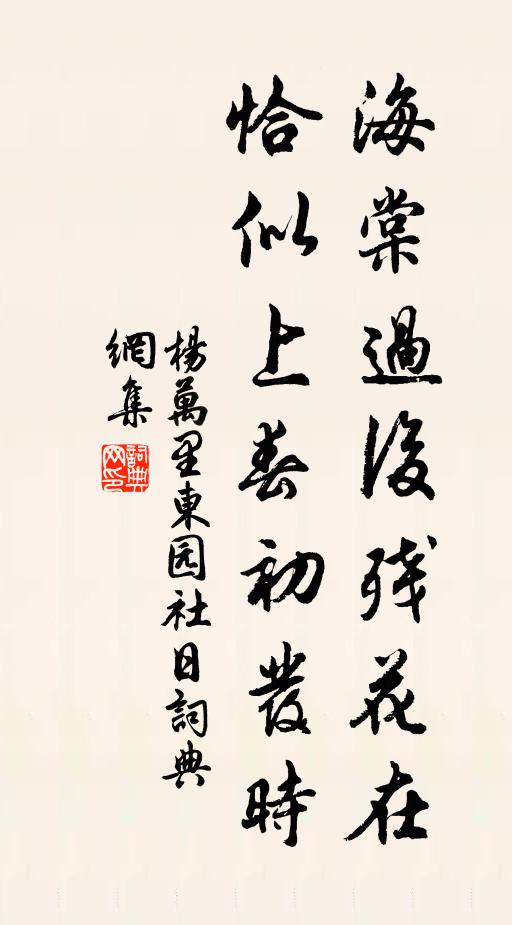 海棠過後残花在
恰似上春初發時
楊萬里東园社日詞典
網集
詞典网印